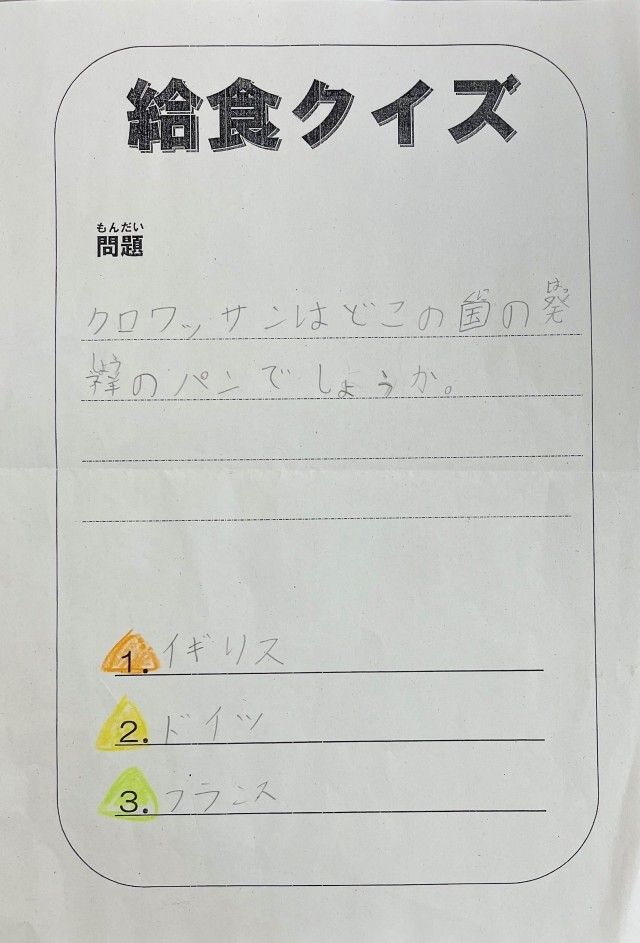 給食クイズ
もんだい
問題
くに はっ
クロワッサンはどこの国の発
しょう
祥のパンでしょうか。
1. イギリス
2. ドイツ
3. フランス